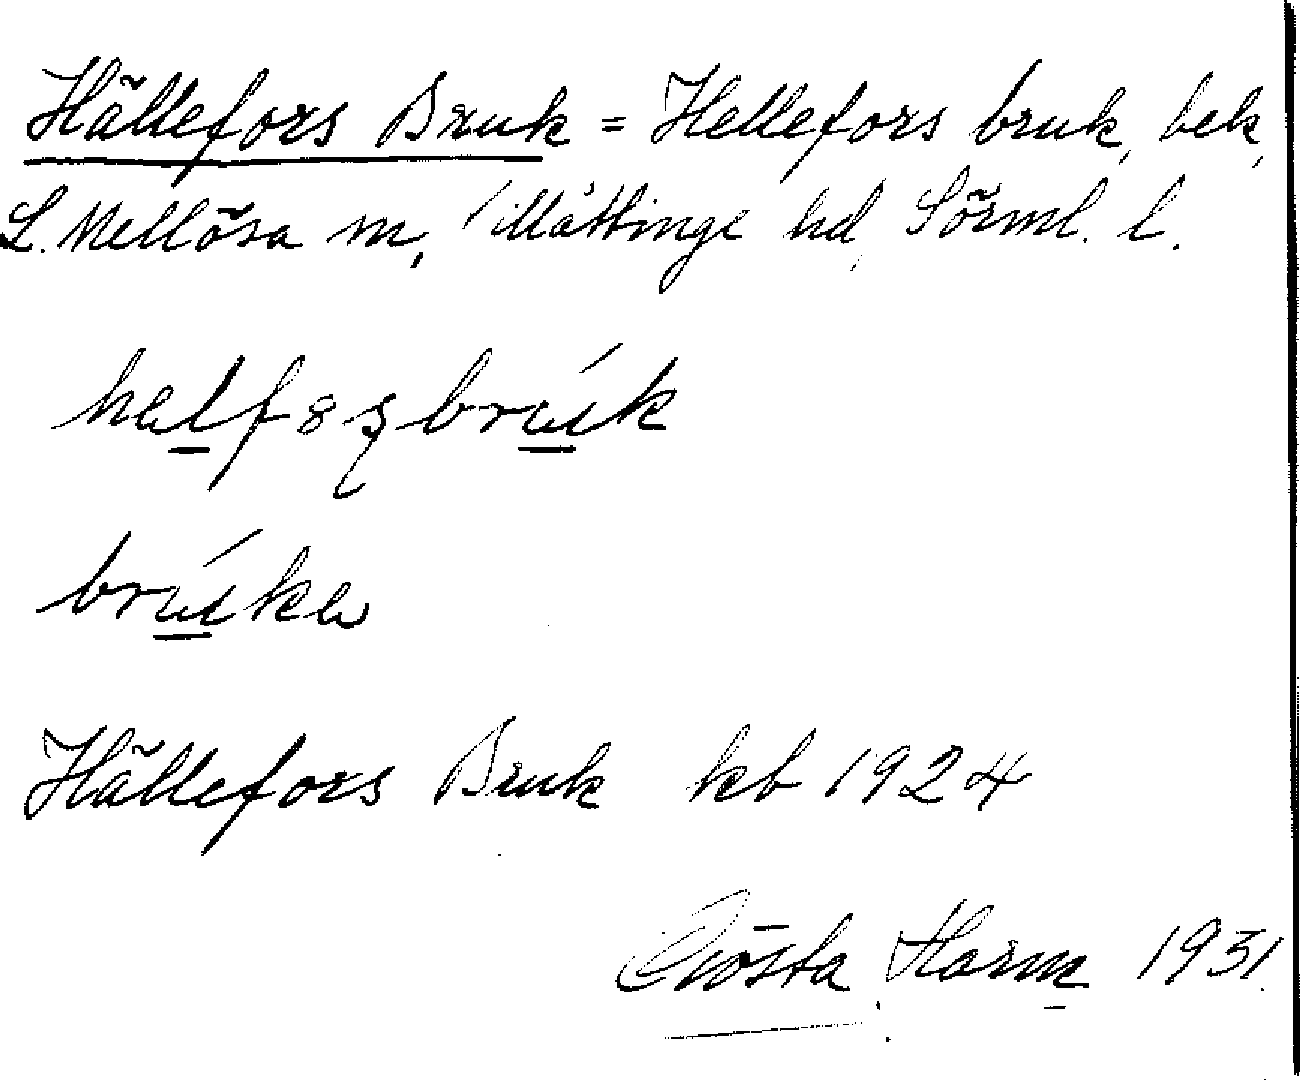 Hällefors Bruk = Hellefors bruk, bek,
L. Mellösa sn, Villåttinge hd, Sörml. l.
brúka
Hällefors Bruk kb 1924
Gösta Harm 1931.